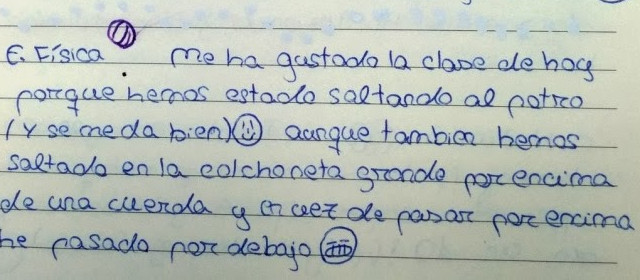 E. Física me ha gustado la clase de hoy
porque hemos estado saltando al potro
(y se me da bien) aunque tambien hemos
saltado en la colchoneta grande por encima
de una cuerda y en vez de pasar por encima
he pasado por debajo